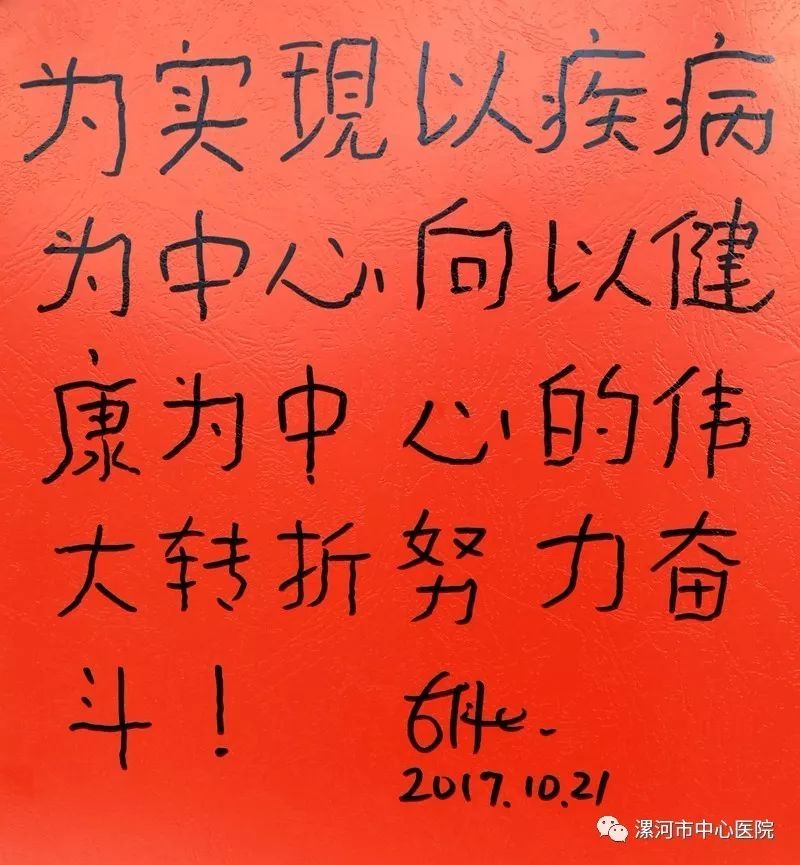 为实現以疾病
为中心向以健
康为中心的伟
大转折努力奋
斗！
2017.10.21
漯河市中心医院